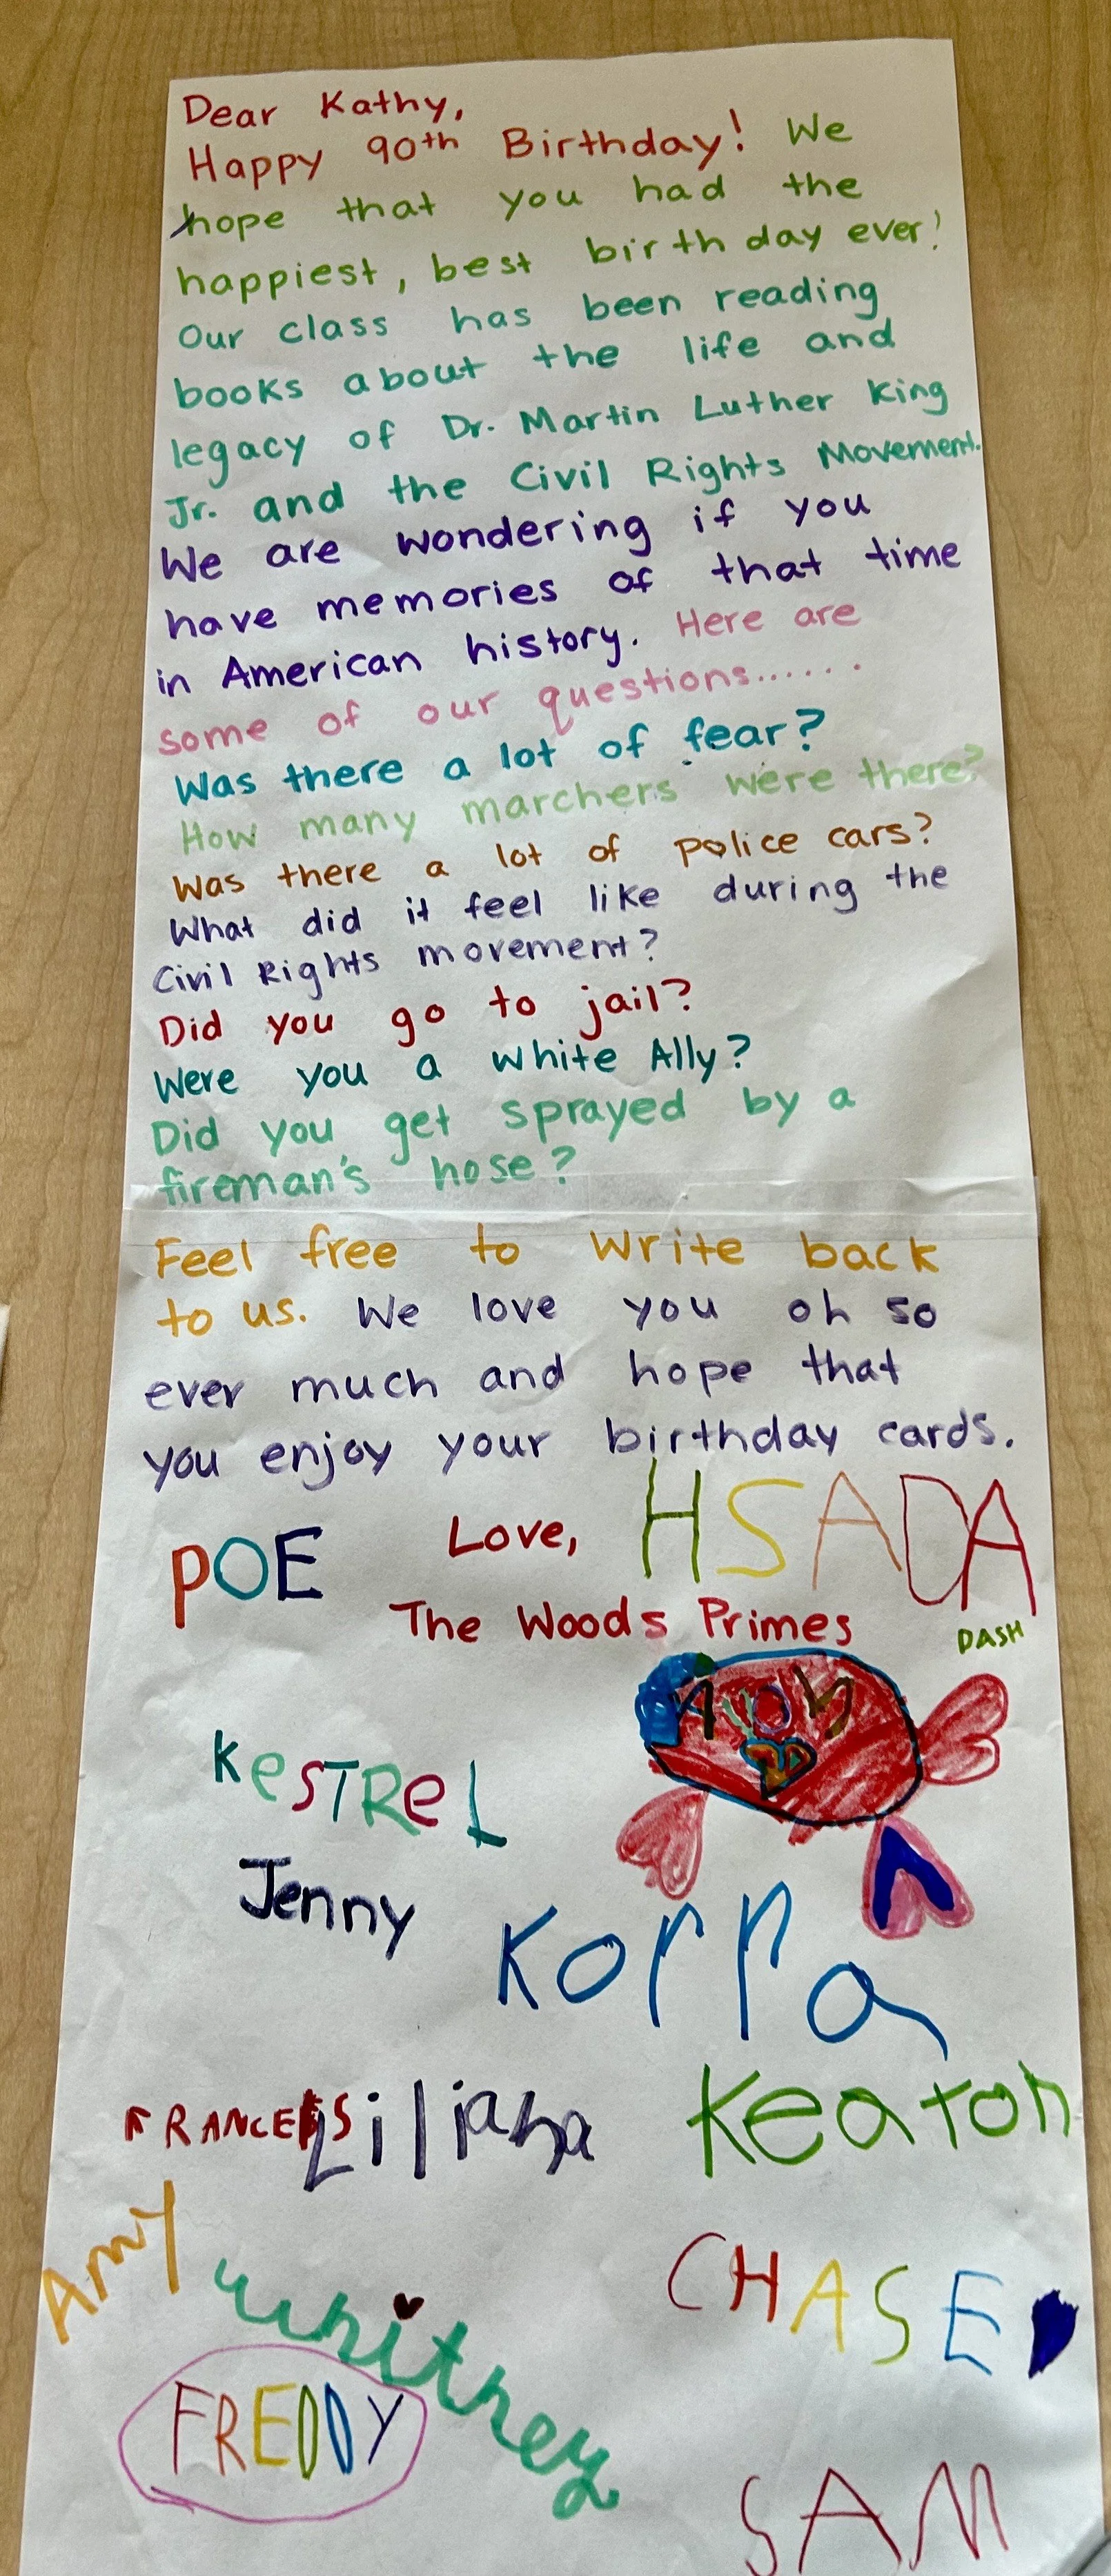 Dear Kathy,
Happy 90th Birthday! We
hope that you had the
happiest, best birthday ever!
Our class has been reading
books about the life and
legacy of Dr. Martin Luther King
Jr. and the Civil Rights Movement.
We are wondering if you
have memories of that time
in American history. Here are
some of our questions.....
Was there a lot of fear?
How many marchers were there?
Was there a lot of police cars?
What did it feel like during the
Civil Rights movement?
Did you go to jail?
Were you a white Ally?
Did you get sprayed by a
fireman's hose?
Feel free to write back
to us. We love you oh so
ever much and hope that
you enjoy your birthday cards.
POE Love, HSADA
The Woods Primes
DASH
KeSTReL
Jenny
Korra
FRANCES Liliana Keaton
Amy
whitney
CHASE
FREDDY
SAM